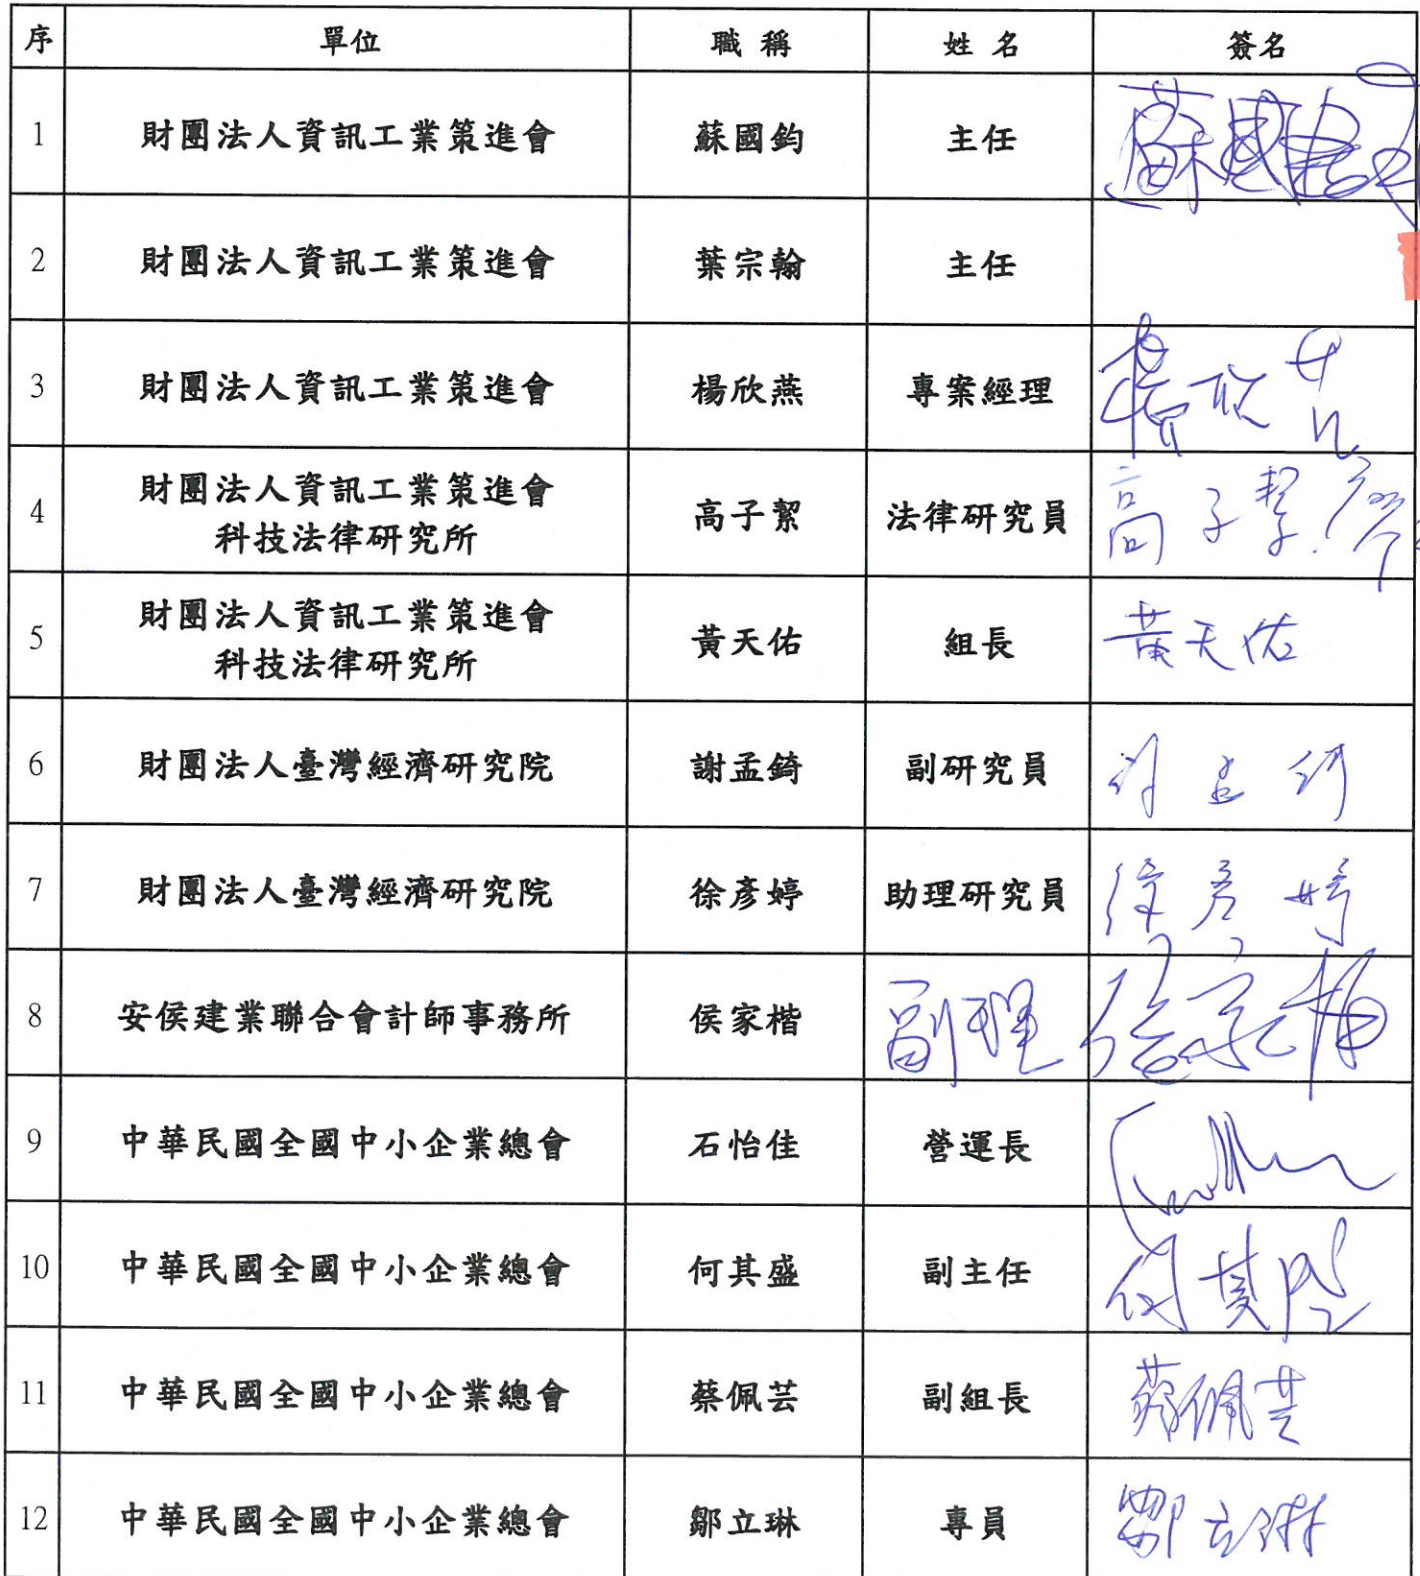 序 單位 職稱 姓名 簽名
1 財團法人資訊工業策進會 蘇國鈞 主任 蘇國鈞
2 財團法人資訊工業策進會 葉宗翰 主任
3 財團法人資訊工業策進會 楊欣燕 專案經理 楊欣
4 財團法人資訊工業策進會
科技法律研究所 高子絜 法律研究員 高子
5 財團法人資訊工業策進會
科技法律研究所 黃天佑 組長 黃天佑
6 財團法人臺灣經濟研究院 謝孟錡 副研究員 謝孟錡
7 財團法人臺灣經濟研究院 徐彥婷 助理研究員 徐彥婷
8 安侯建業聯合會計師事務所 侯家楷 副理
9 中華民國全國中小企業總會 石怡佳 營運長
10 中華民國全國中小企業總會 何其盛 副主任 何其盛
11 中華民國全國中小企業總會 蔡佩芸 副組長 蔡佩芸
12 中華民國全國中小企業總會 鄒立琳 專員 鄒立琳